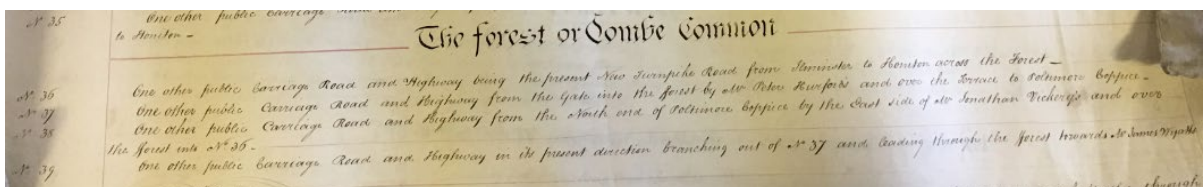 No 35 One other public Carriage Road and
to Honiton –
The Forest or Combe Common
No 36 One other public Carriage Road and Highway being the present New Turnpike Road from Ilminster to Honiton across the Forest –
No 37 One other public Carriage Road and Highway from the Gate into the Forest by Mr Peter Hurford's and over the Terrace to Poltimore Coppice –
No 38 One other public Carriage Road and Highway from the North end of Poltimore Coppice by the East side of Mr Jonathan Vickery's and over
the Forest into No 36 –
No 39 One other public Carriage Road and Highway in its present direction branching out of No 37 and leading through the Forest towards Mr James Wyatts
through